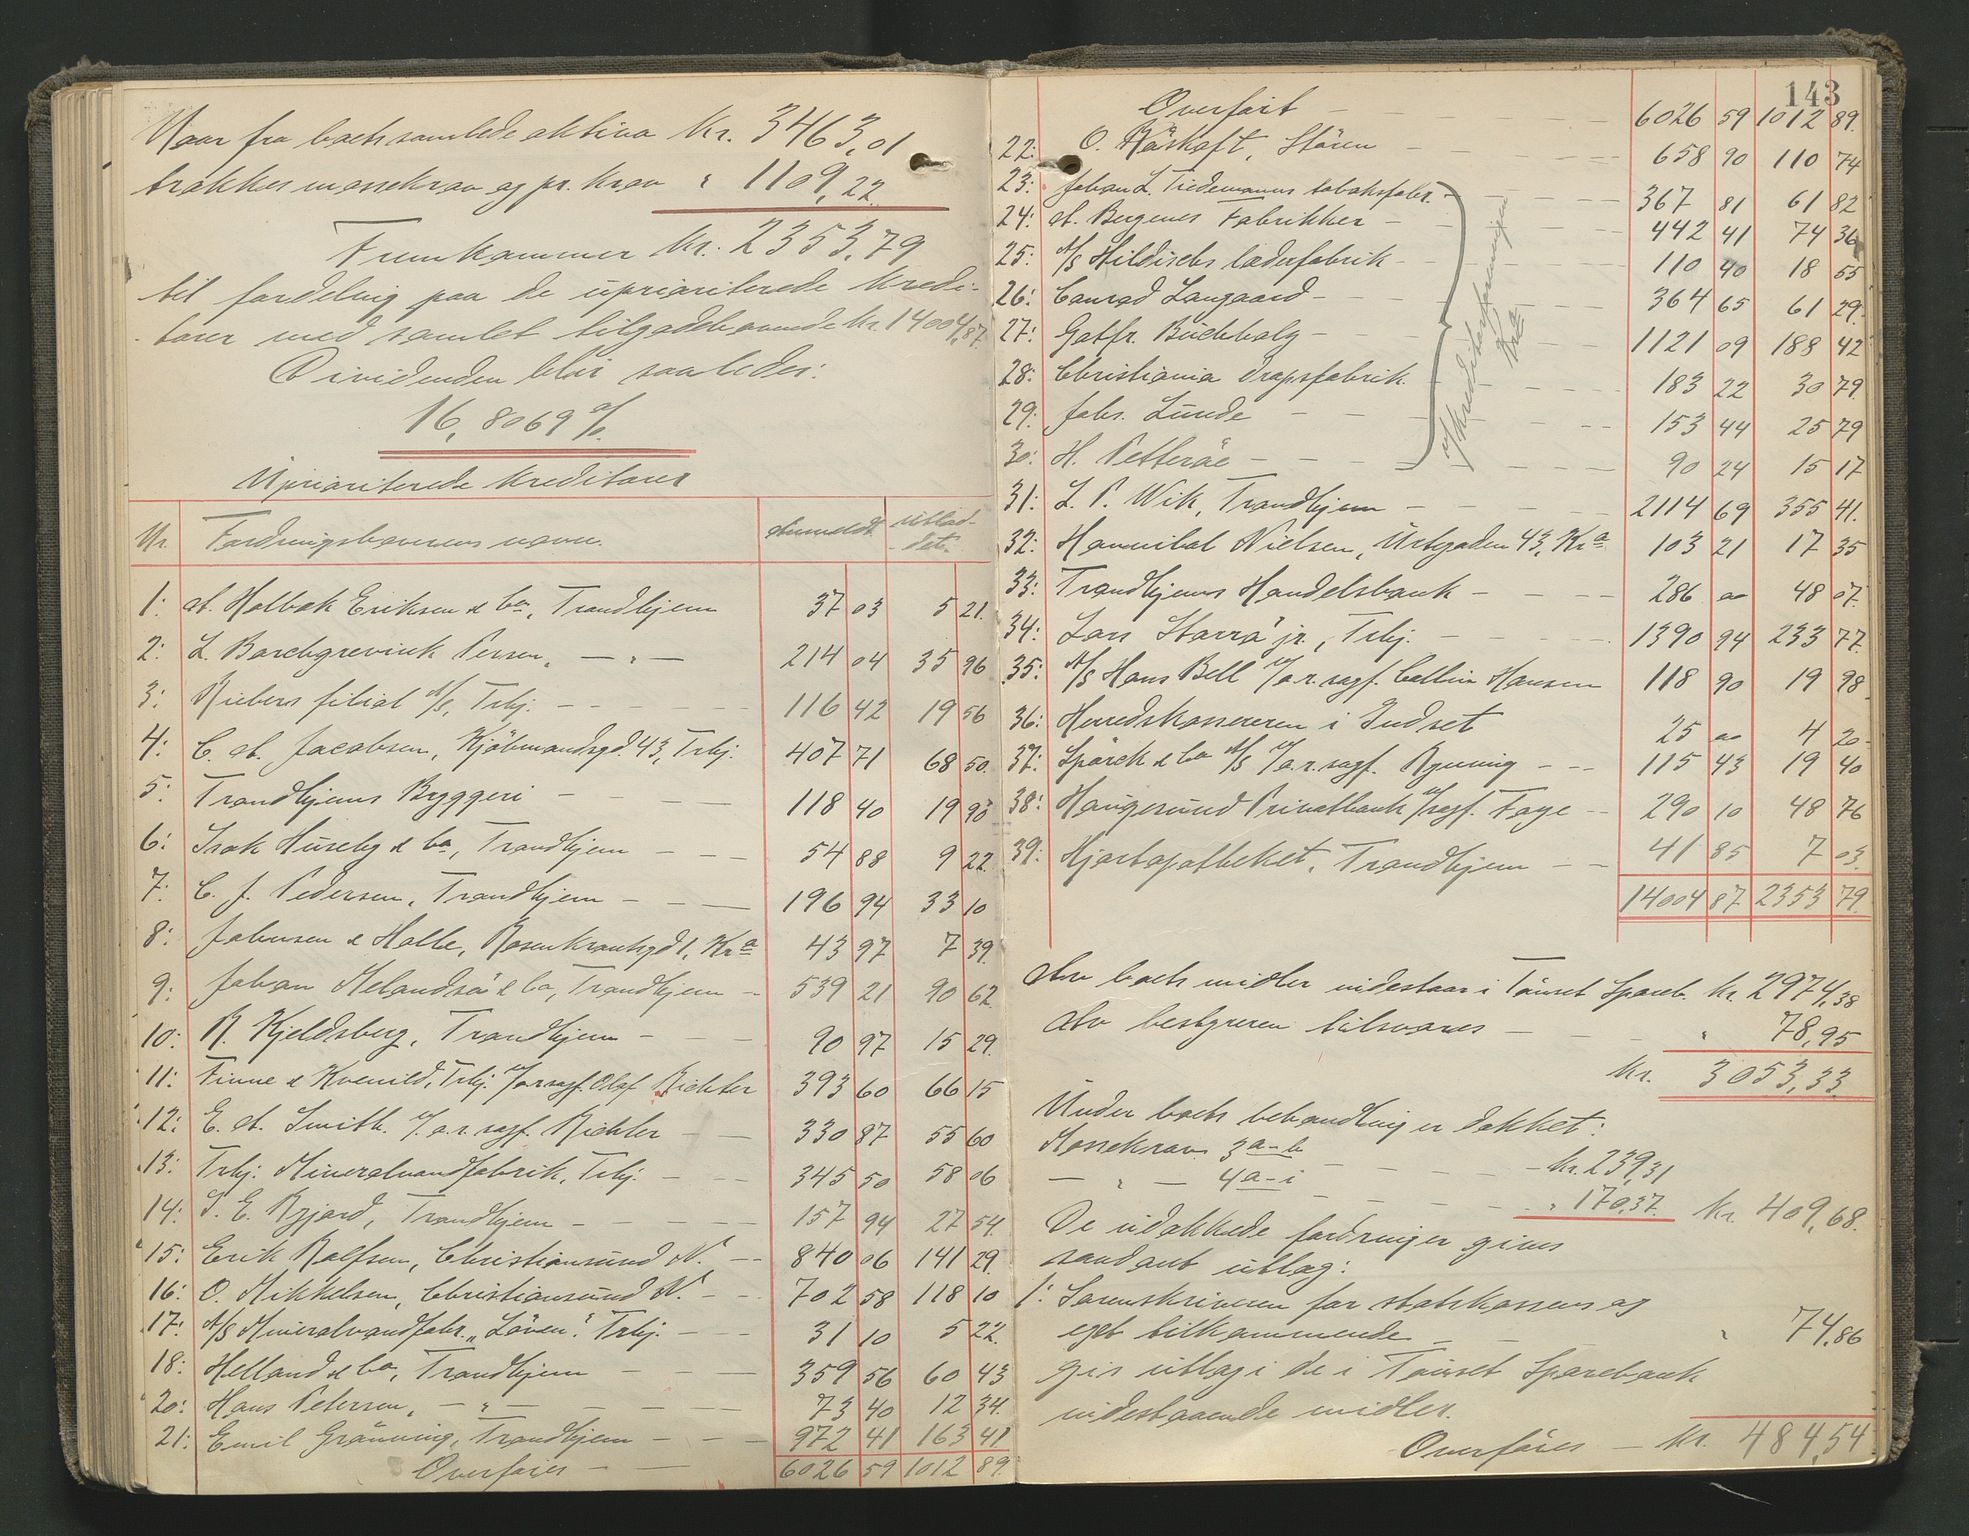 Naar fra boets samlede aktiva Kr. 3463,01
trækkes massekrav og pr. krav " 1109,22
Fremkommer Kr. 2353,79
til fordeling paa de uprioriterede kredi-
torer med samlet tilgodehavende kr. 14004,87.
Dividenden blir saaledes:
16,8069 %.
Uprioriterede kreditorer
Nr. Fordringshaverens navn. Anmeldt. utlod-
det.
1: A. Holbæk Eriksen & Co, Trondhjem 37 03 5 21.
2: L. Borchgrevink Persen, — " — 214 04 35 96
3: Riebers filial A/S, Trhj. - - - 116 42 19 56
4: C. A. Jacobsen, Kjöbmandsgd. 43, Trhj. 407 71 68 50.
5: Trondhjems Bryggeri - - - 118 40 19 90
6: Isak Huseby & Co, Trondhjem - - - 54 88 9 22.
7: C. J. Pedersen, Trondhjem - - - 196 94 33 10
8: Johnsen & Halle, Rosenkrantzgd 1, Kra 43 97 7 39.
9: Johan Melandsö & Co, Trondhjem - 539 21 90 62.
10: R. Kjeldsberg, Trondhjem - - - 90 97 15 29.
11: Finne & Kvenild, Trhj. v/o.r.sagf. Olaf Richter 393 60 66 15
12: E. A. Smith. v/o.r.sagf. Richter - - 330 87 55 60
13: Trhj. Mineralvandfabrik, Trhj. - - - 345 50 58 06
14: P. E. Ryjord, Trondhjem - - - - 157 94 27 54.
15: Erik Rolfsen, Christiansund N. - - 840 06 141 29.
16: O. Mikkelsen, Christiansund N. - - 702 58 118 10
17: A/S Mineralvandfabr. "Löven". Trhj. - - 31 10 5 22.
18: Helland & Co, Trondhjem - - - 359 56 60 43
20: Hans Petersen, — " — - - - 73 40 12 34.
21: Emil Grönning, Trondhjem - - - 972 41 163 41
Overføres - - 6026 59 1012 89.
143
Overført - 6026 59 1012 89.
22: O. Röskaft, Stören - - - 658 90 110 74
23: Johan L. Tiedemanns tobaksfabr. - 367 81 61 82
24: A. Bergenes Fabrikker - 442 41 74 36
25: A/S Hildisch læderfabrik - 110 40 18 55
26: Conrad Langaard - - - 364 65 61 29.
27: Gotfr. Buchholz - 1121 09 188 42
28: Christiania Dropsfabrik 183 22 30 79
29: Johs. Lunde - - - 153 44 25 79
30: H. Petterøe - - - 90 24 15 17
v/Kreditorforeningen
Kra
31: L. P. Wik, Trondhjem - - - 2114 69 355 41.
32: Hannibal Nielsen, Urtegaden 43, Kra 103 21 17 35
33: Trondhjems Handelsbank - - - 286 00 48 07.
34: Lars Storrø jr., Trhj. - - - 1390 94 233 77.
35: A/S Hans Bell v/o.r.sagf. Collin Hansen 118 90 19 98.
36: Herredskassereren i Indset 25 00 4 20-
37: Spørck & Co A/S v/o.r.sagf. Ryning - - 115 43 19 40
38: Haugesund Privatbank v/sagf. Faye - - 290 10 48 76
39: Hjorteapotheket, Trondhjem - - 41 85 7 03.
14004 87 2353 79.
Av boets midler indestaar i Tönset Spareb. Kr. 2974,38
Av bestyreren tilsvares - - - " 78,95
Kr. 3053,33.
Under boets behandling er dækket:
Massekrav 3 a-b - - - Kr. 239,31
— " — 4 a-i - - - " 170,37. Kr. 409,68.
De udækkede fordringer gives
saadant utlæg:
1: Sorenskriveren for statskassens og
eget tilkommende - - " 74,86
gis utlæg i de i Tönset Sparebank
indestaaende midler.
Overføres - Kr. 484,54